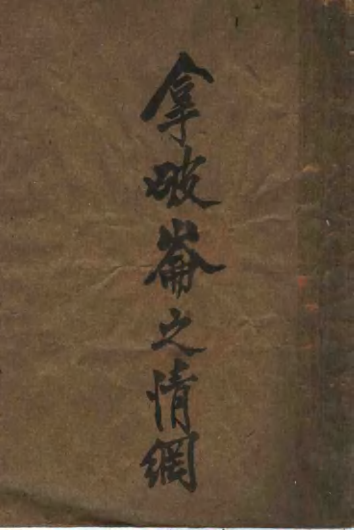 拿破崙之情網